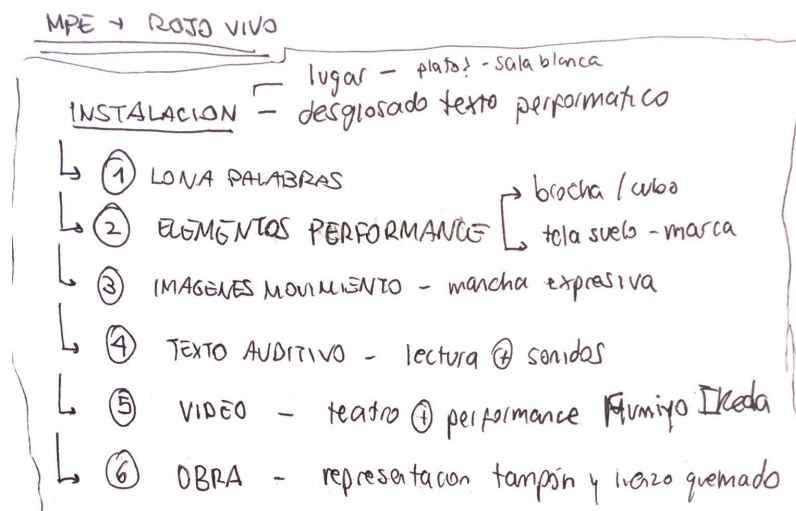 MPE → ROJO VIVO
lugar - plato? - sala blanca
INSTALACION - desglosado texto performatico
↳ ① LONA PALABRAS
→ brocha / cubo
↳ ② ELEMENTOS PERFORMANCE
↳ tela suelo - marca
↳ ③ IMAGENES MOVIMIENTO - mancha expresiva
↳ ④ TEXTO AUDITIVO - lectura ⊕ sonidos
↳ ⑤ VIDEO - teatro ⊕ performance Fumiyo Ikeda
↳ ⑥ OBRA - representacion tampón y lienzo quemado